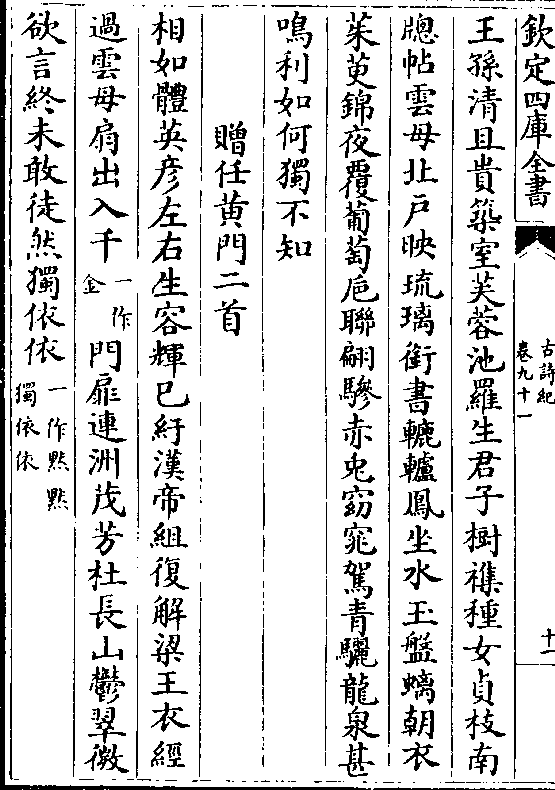 欽定四庫全書
古詩紀
卷九十一
十一
王孫清且貴築室芙蓉池羅生君子樹襍種女貞枝南
牕帖雲母北戸映琉璃銜書轆轤鳳坐水玉盤螭朝衣
茱萸錦夜覆葡萄巵聯翩驂赤兎窈窕駕青驪龍泉甚
鳴利如何獨不知
贈任黄門二首
相如體英彦左右生容輝已紆漢帝組復解梁王衣經
過雲母扇出入千一作金門扉連洲茂芳杜長山鬱翠微
欲言終未敢徒然獨依依一作黙黙獨依依